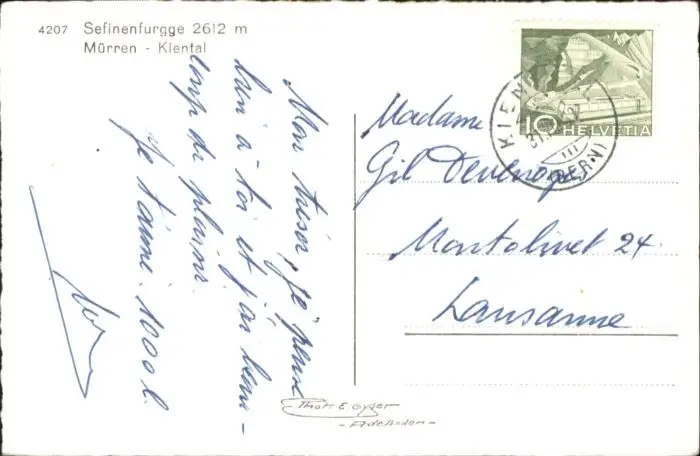 4207 Sefinenfurgge 2612 m
Mürren - Kiental
Mon trésor, je pense
bien à toi et j'ai beau-
coup de plaisir.
Je t'aime. 1000 b.
10 HELVETIA
KIEN
(BERN)
Madame
Gil Devenoge,
Montolivet 24.
Lausanne
Phot. E. Gyger
- Adelboden -